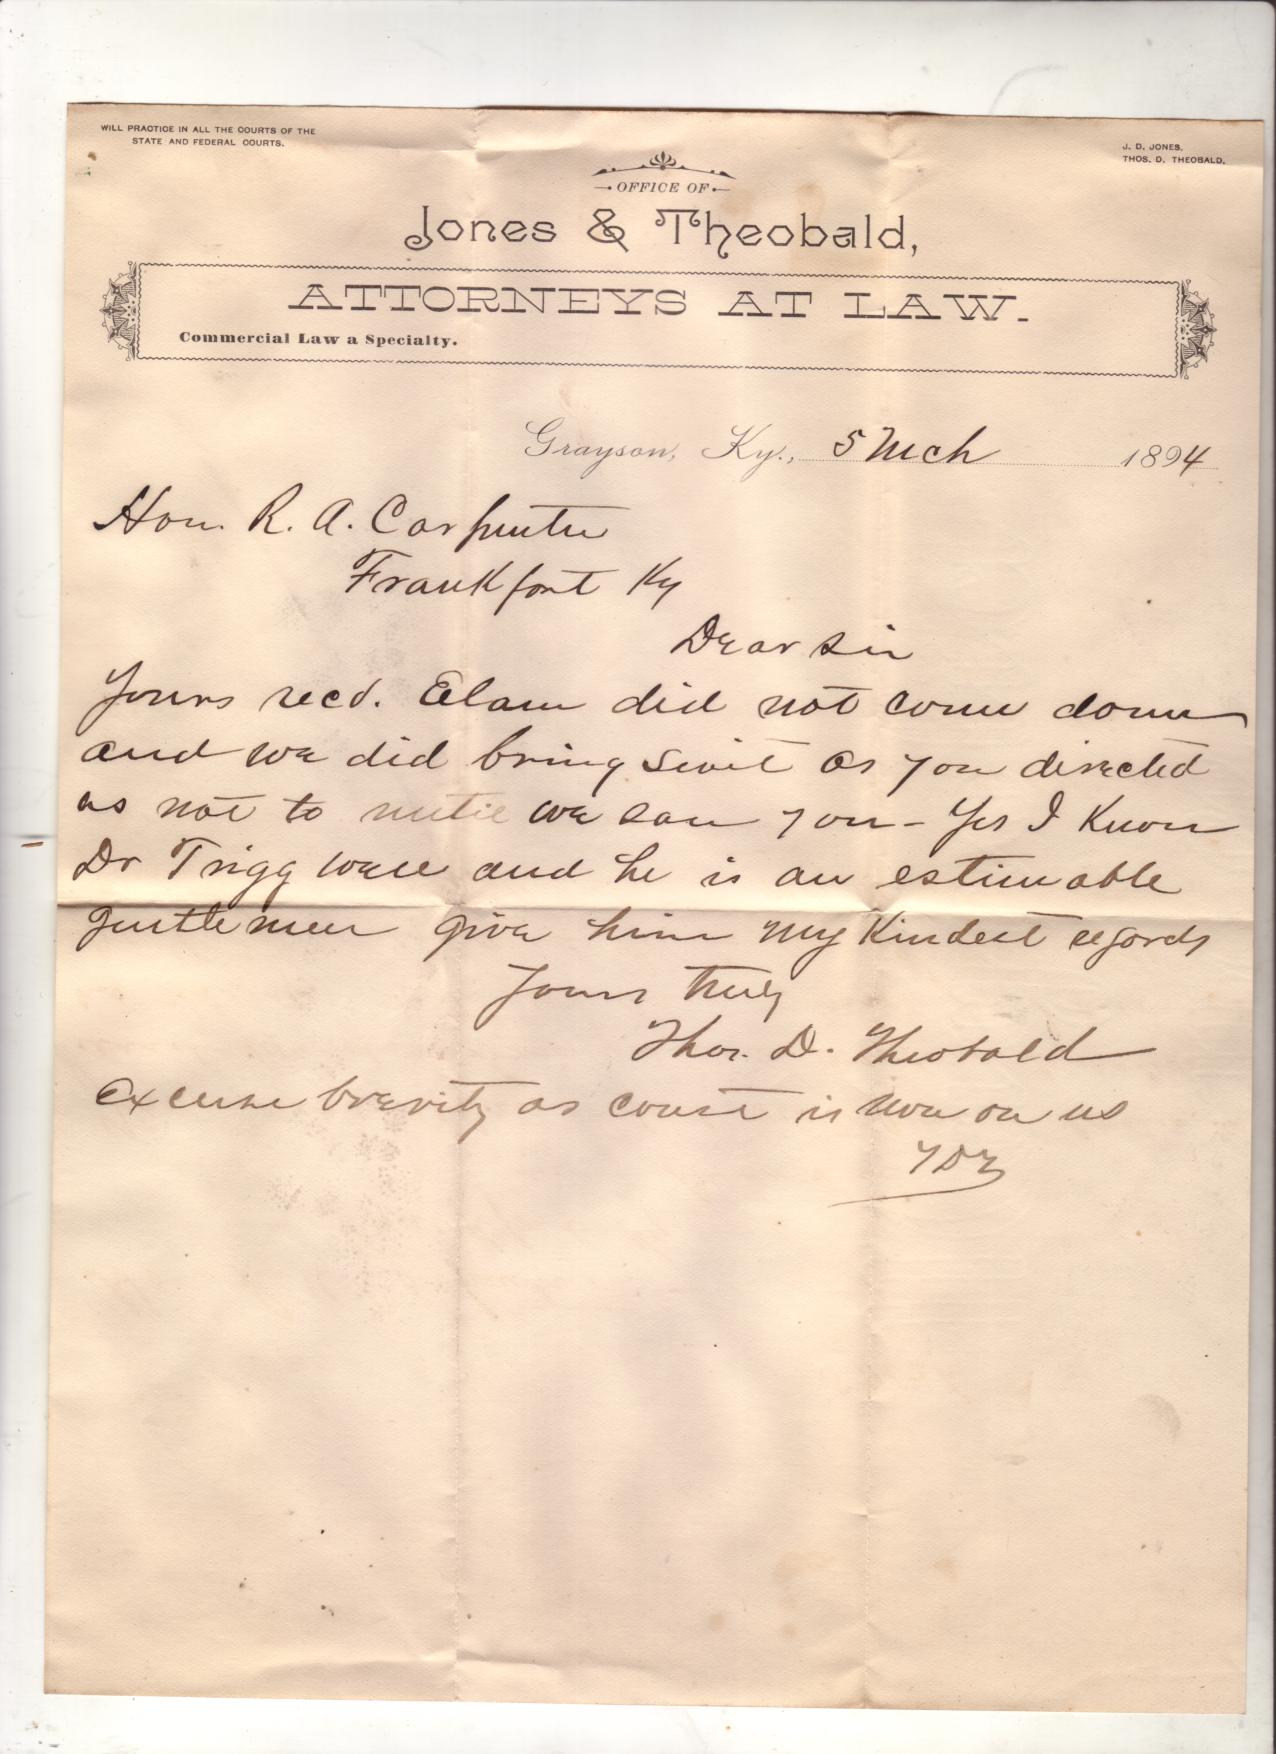 WILL PRACTICE IN ALL THE COURTS OF THE
STATE AND FEDERAL COURTS.
J. D. JONES.
THOS. D. THEOBALD.
OFFICE OF
Jones & Theobald,
ATTORNEYS AT LAW.
Commercial Law a Specialty.
Grayson, Ky., 5 Mch 1894
Hon. R. A. Carpenter
Frankfort Ky
Dear Sir
Yours recd. Elam did not come down
and we did bring suit as you directed
us not to until we saw you - Yes I Know
Dr Trigg well and he is an estimable
gentleman give him my Kindest regards
Yours truly
Thos. D. Theobald
Excuse brevity as court is now on us
TDT